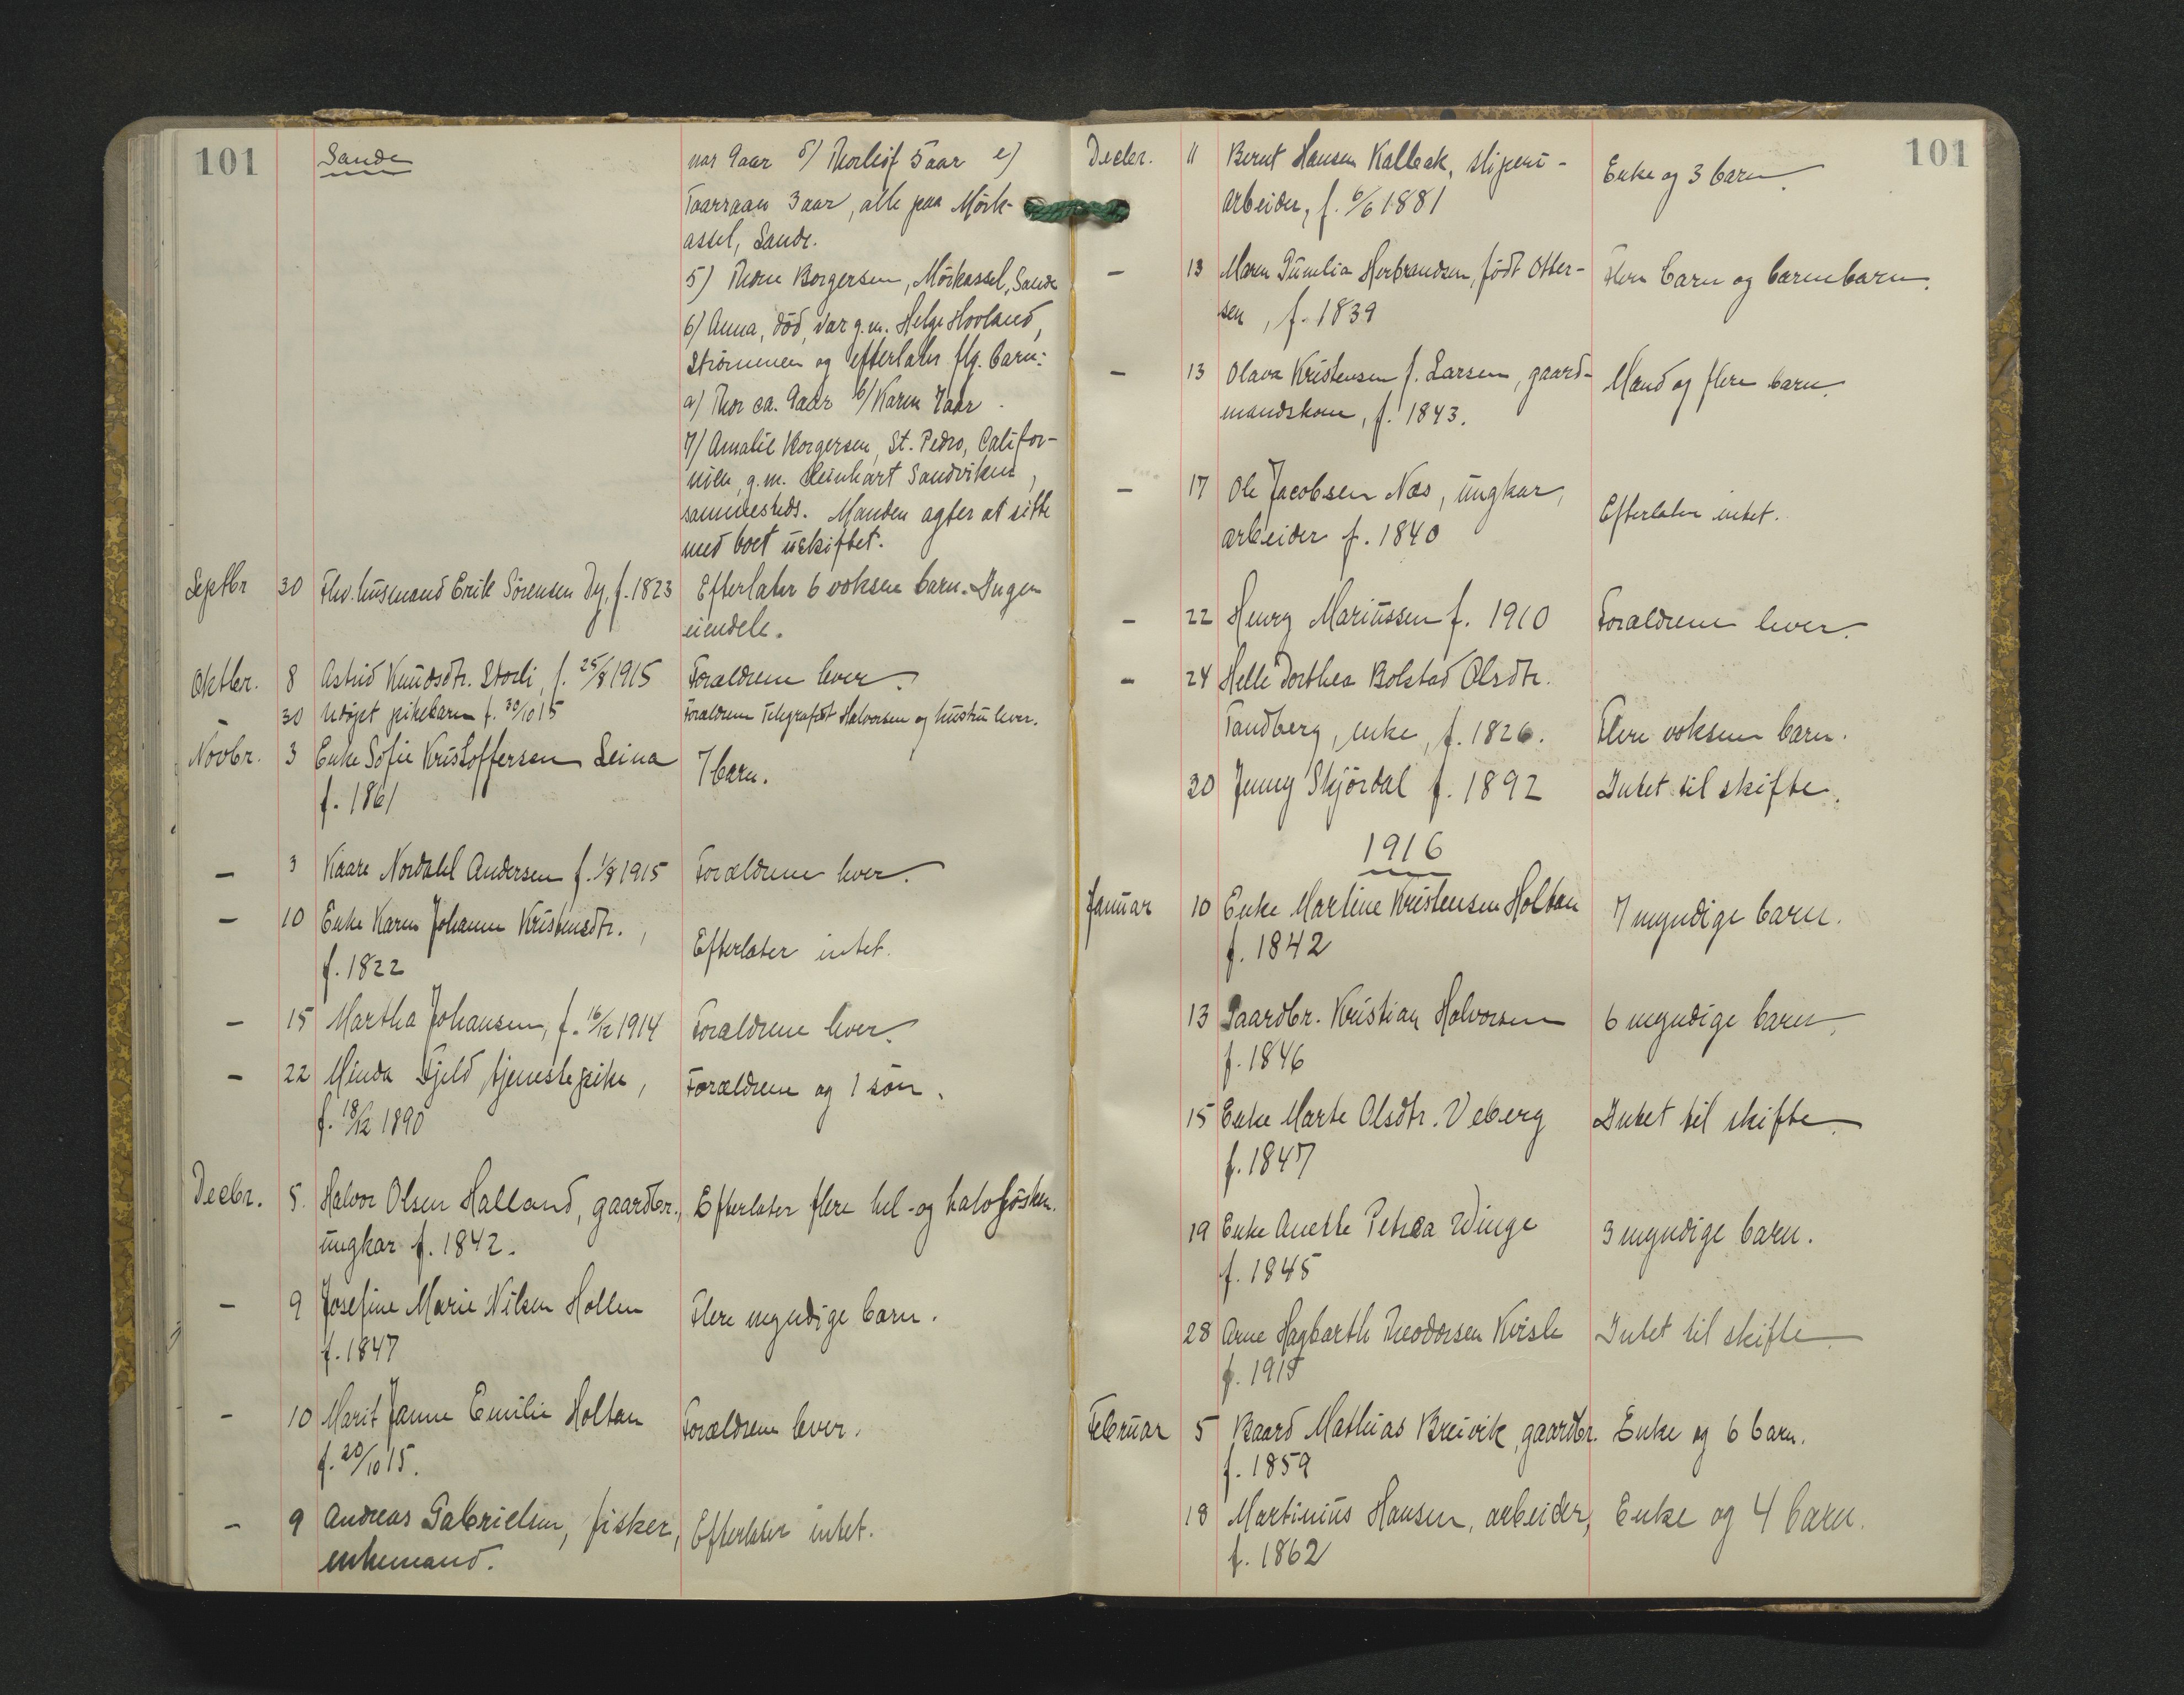 101
Sande
nar 9 aar d) Thorleif 5 aar e)
Taarraan 3 aar, alle paa Mörk-
assel, Sande.
5) Thora Borgersen, Mörkassel, Sande
6) Anna, död, var g.m. Helge Hovland,
Strömmen og efterlater flg. barn:
a) Thor ca. 9 aar b) Karen 7 aar.
7) Amalie Borgersen, St. Pedro, Califor-
nien, g.m. Reinhart Sandviken,
sammesteds. Manden agter at sitte
med boet uskiftet.
Septbr 30 Fhv. husmand Erik Sörensen Dy, f. 1823 Efterlater 6 voksne barn. Ingen
eiendele.
Oktbr. 8 Astrid Knudsdtr. Storli, f. 25/8 1915 Forældrene lever.
30 Udöpt pikebarn f. 30/10 15 Forældrene Telegrafist Halvorsen og hustru lever.
Novbr. 3 Enke Sofie Kristoffersen Leina 7 barn.
f. 1861
— 3 Kaare Nordahl Andersen f. 1/8 1915 Forældrene lever.
— 10 Enke Karen Johanne Kristensdtr.,
Efterlater intet.
f. 1822
— 15 Martha Johansen, f. 16/12 1914 Forældrene lever.
— 22 Minda Fjeld, tjenestepike, Forældrene og 1 sön.
f. 18/12 1890
Decbr. 5. Halvor Olsen Halland, gaardbr., Efterlater flere hel- og halvsösken.
ungkar f. 1842.
— 9 Josefine Marie Nilsen Hollen Flere myndige barn.
f. 1847
— 10 Marit Janne Emilie Holtan Forældrene lever.
f. 20/10 15.
— 9 Andreas Gabrielsen, fisker, Efterlater intet.
enkemand.
101
Decbr. 11 Bernt Hansen Kalbak, sliperi- Enke og 3 barn.
arbeider, f. 6/6 1881
— 13 Maren Gunelia Herbrandsen, födt Otter- Flere barn og barnebarn.
sen, f. 1839
— 13 Olava Kristensen f. Larsen, gaard- Mand og flere barn.
mandskone, f. 1843.
— 17 Ole Jacobsen Næs, ungkar,
Efterlater intet.
arbeider f. 1840
— 22 Henry Mariussen f. 1910 Forældrene lever.
— 24 Helle Dorthea Bolstad Olsdtr.
Tandberg, enke, f. 1826. Flere voksne barn.
30 Jenny Skjördal f. 1892 Intet til skifte.
1916
Januar 10 Enke Martine Kristensen Holtan 7 myndige barn.
f. 1842
13 Gaardbr. Kristian Halvorsen 6 myndige barn.
f. 1846
15 Enke Marte Olsdtr. Veberg Intet til skifte.
f. 1847
19 Enke Anette Petrea Winge 3 myndige barn.
f. 1845
28 Arne Hagbarth Theodorsen Kvisle Intet til skifte.
f. 1915
Februar 5 Baard Mathias Breivik, gaardbr. Enke og 6 barn.
f. 1859
18 Martinius Hansen, arbeider, Enke og 4 barn.
f. 1862